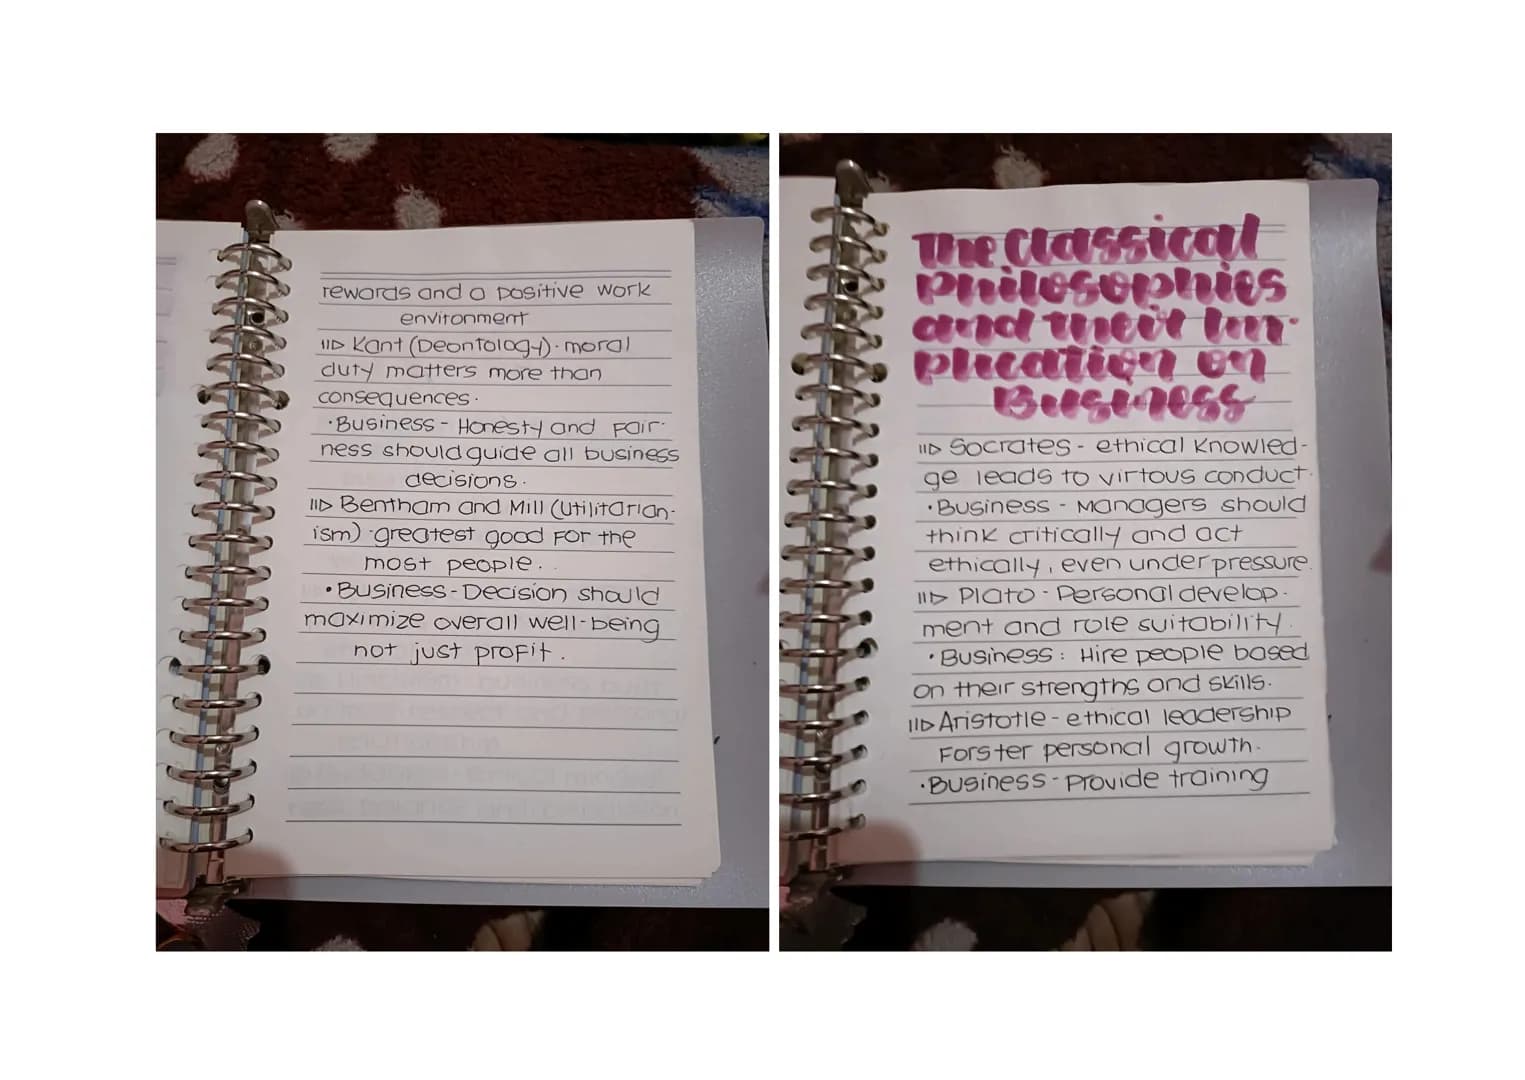 rewards and a positive work
environment
Kant (Deontology). moral
duty matters more than
consequences.
•Business - Honesty and Fair-
ness should guide all business
decisions.
Bentham and Mill (Utilitarian-
ism) - greatest good For the
most people.
•Business - Decision should
maximize overall well-being
not just profit.
The Classical
Philosophies
and their Im-
plication on
Business
Socrates - ethical Knowled-
ge leads to virtous conduct.
•Business - Managers should
think critically and act
ethically, even under pressure.
Plato - Personal develop-
ment and role suitability.
•Business: Hire people based
on their strengths and skills.
Aristotle - ethical leadership
Forster personal growth.
•Business - Provide training